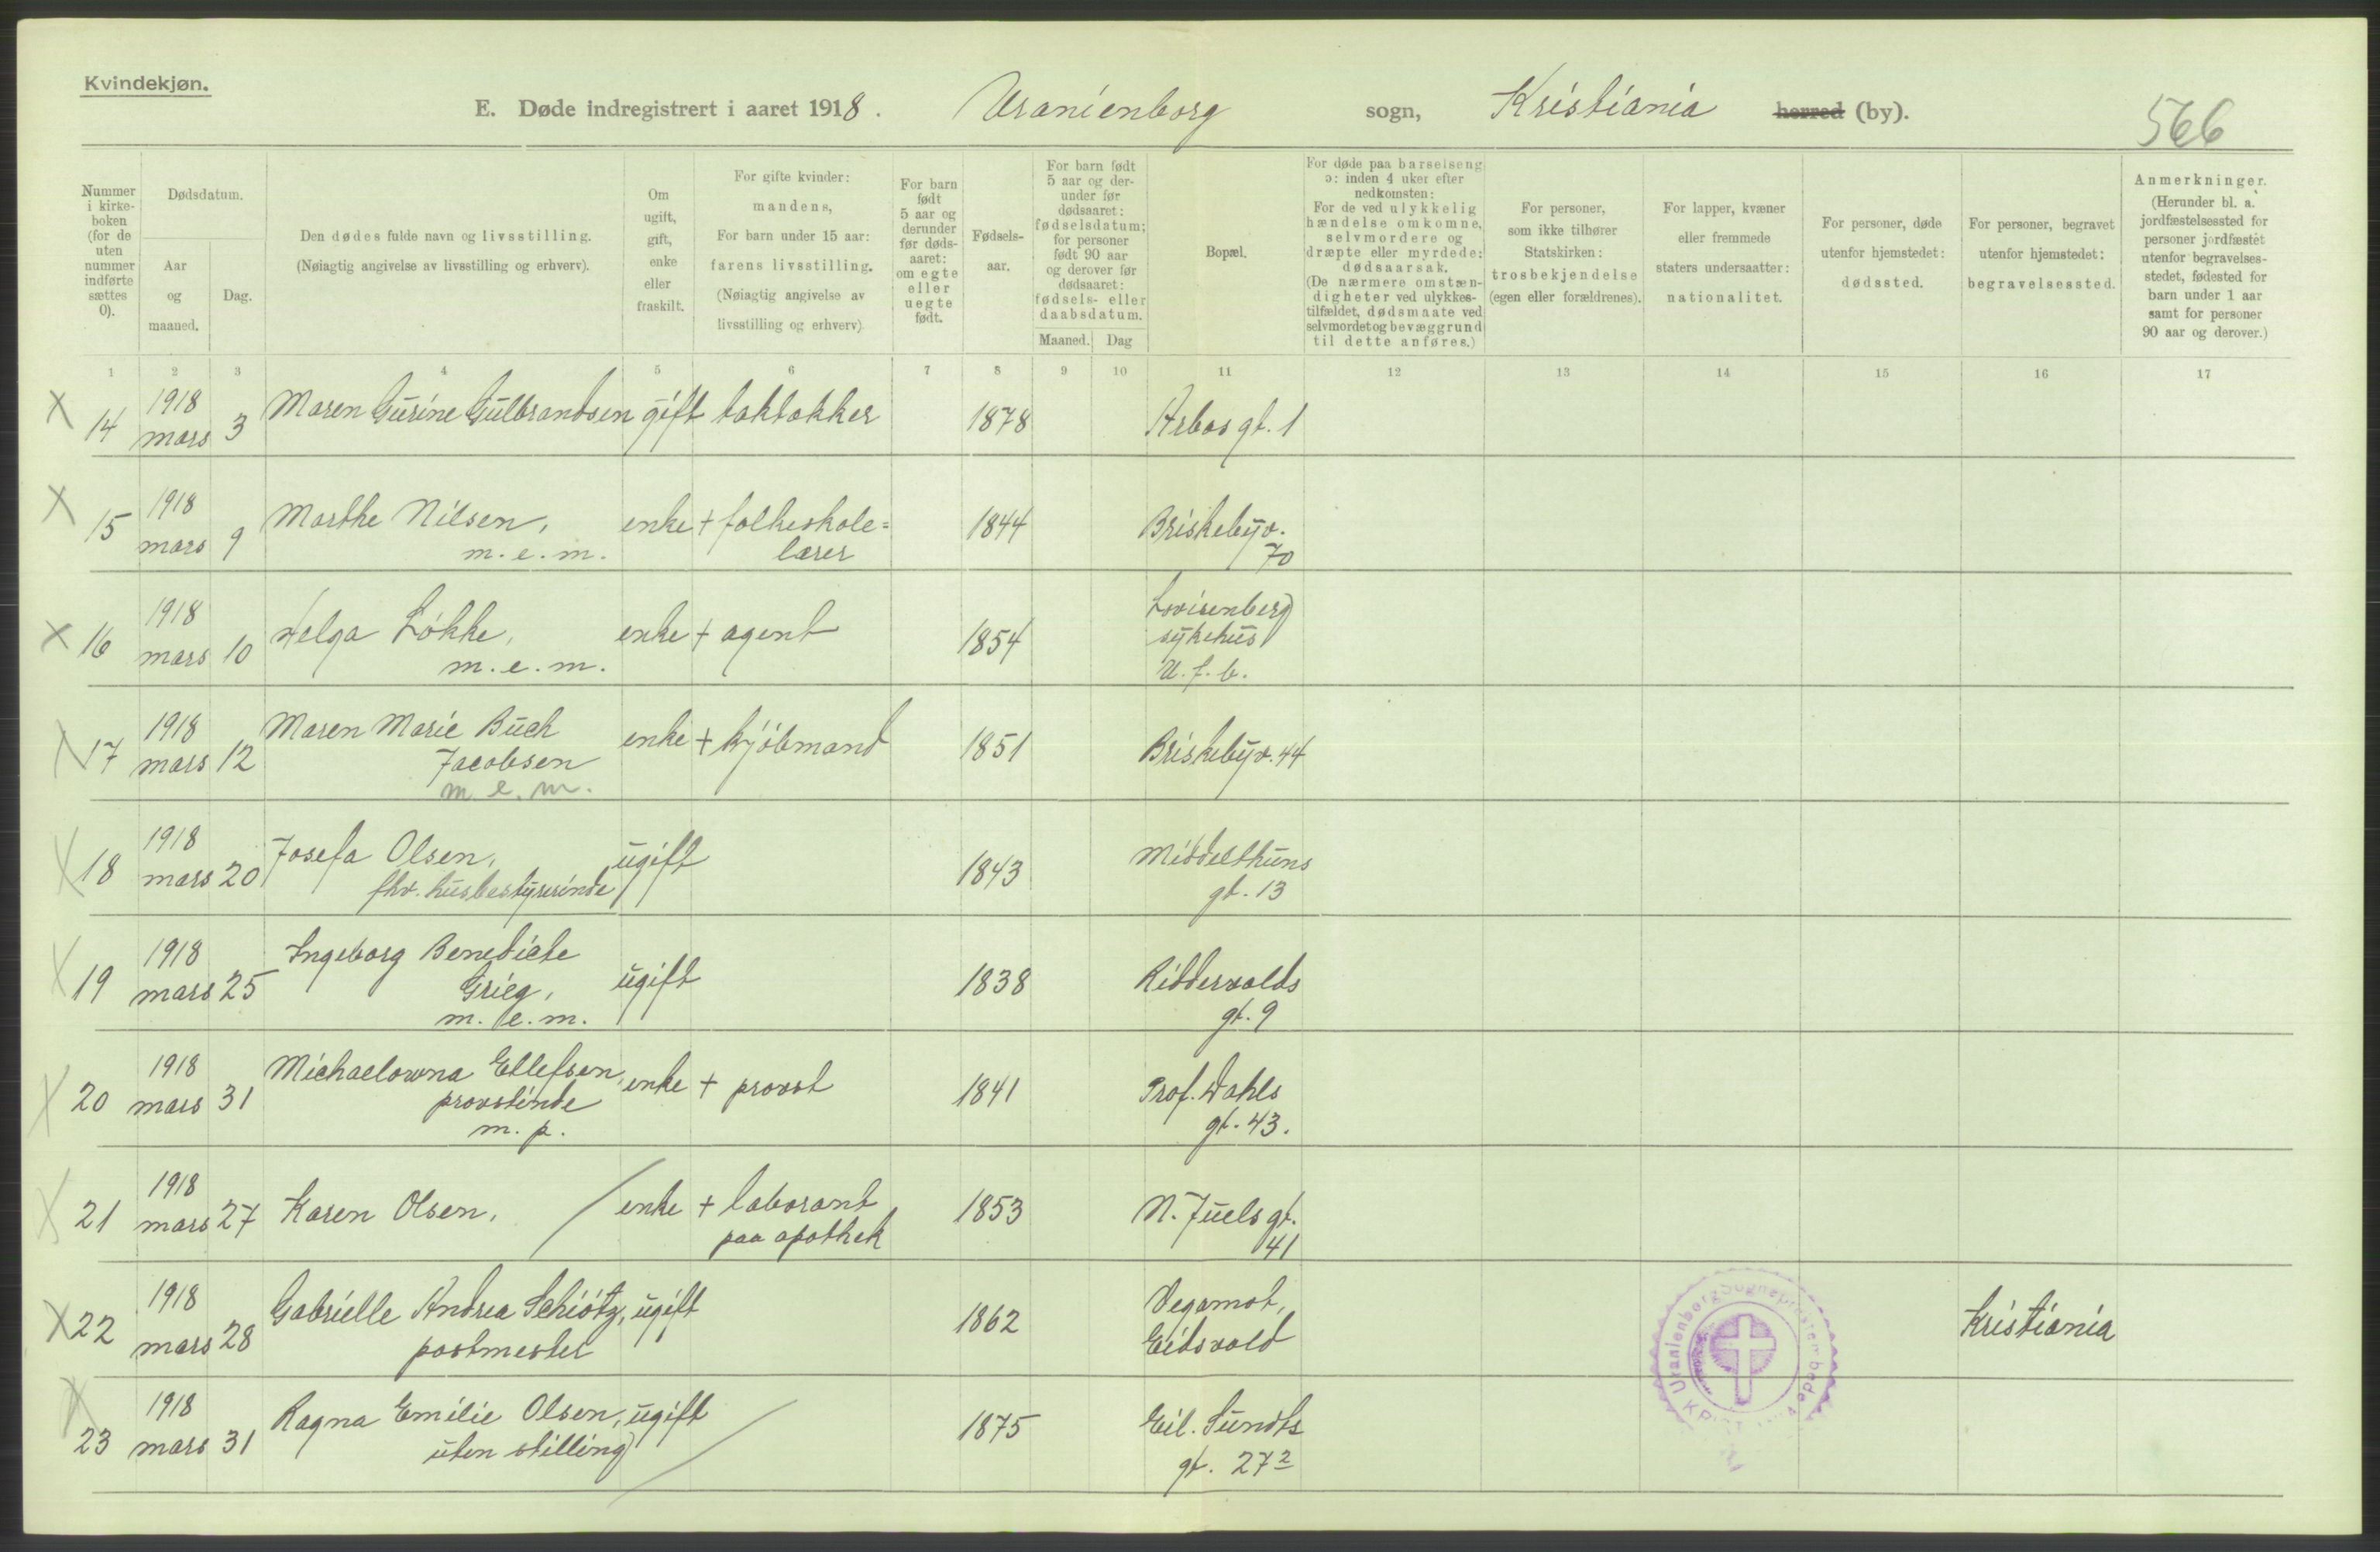 Kvindekjøn.
E. Døde indregistrert i aaret 1918. Uranienborg sogn, Kristiania herred (by).
566
Nummer i kirke-boken (for de uten nummer indførte sættes 0).
Dødsdatum.
Aar og maaned.
Dag.
Den dødes fulde navn og livsstilling.
(Nøiagtig angivelse av livsstilling og erhverv).
Om ugift, gift, enke eller fraskilt.
For gifte kvinder: mandens,
For barn under 15 aar: farens livsstilling.
(Nøiagtig angivelse av livsstilling og erhverv)
For barn født 5 aar og derunder før døds-aaret: om egte eller uegte født.
Fødsels-aar.
For barn født 5 aar og der-under før dødsaaret: fødselsdatum; for personer født 90 aar og derover før dødsaaret: fødsels- eller daabsdatum.
Maaned. Dag
Bopæl.
For døde paa barselseng ɔ: inden 4 uker efter nedkomsten:
For de ved ulykkelig hændelse omkomne, selvmordere og dræpte eller myrdede: dødsaarsak.
(De nærmere omstæn-digheter ved ulykkes-tilfældet, dødsmaate ved selvmordet og bevæggrund til dette anføres.)
For personer, som ikke tilhører Statskirken: trosbekjendelse (egen eller forældrenes).
For lapper, kvæner eller fremmede staters undersaatter: nationalitet.
For personer, døde utenfor hjemstedet: dødssted.
For personer, begravet utenfor hjemstedet: begravelsessted.
Anmerkninger.
(Herunder bl. a. jordfæstelsessted for personer jordfæstet utenfor begravelses-stedet, fødested for barn under 1 aar samt for personer 90 aar og derover.)
1 2 3 4 5 6 7 8 9 10 11 12 13 14 15 16 17
X 14 1918 mars 3 Maren Gurine Gulbrandsen gift taktækker 1878 Arbosgt. 1
X 15 1918 mars 9 Marthe Nilsen, enke + folkeskole= 1844 Briskebyv.
m.e.m. lærer 70
X 16 1918 mars 10 Helga Løkke, enke + agent 1854 Lovisenberg
m.e.m. sykehus
U.f.b.
X 17 1918 mars 12 Maren Marie Buch enke + kjøbmand 1851 Briskebyv. 44
Jacobsen
m.e.m.
X 18 1918 mars 20 Josefa Olsen, ugift 1843 Middelthuns
fhv. husbestyrerinde gt. 13
X 19 1918 mars 25 Ingeborg Benedicte ugift 1838 Riddervolds
Grieg, gt. 9
m.e.m.
X 20 1918 mars 31 Michaelowna Ellefsen, enke + provst 1841 Prof. Dahls
provstinde gt. 43.
m.p.
X 21 1918 mars 27 Karen Olsen, enke + laborant 1853 N. Juels gt.
paa apothek 41
X 22 1918 mars 28 Gabrielle Andrea Schiøtz, ugift 1862 Vegamot, Kristiania
postmester Eidsvold
X 23 1918 mars 31 Ragna Emilie Olsen, ugift 1875 Eil. Sundts
uten stilling gt. 27²
Uranienborg Sogneprestembede